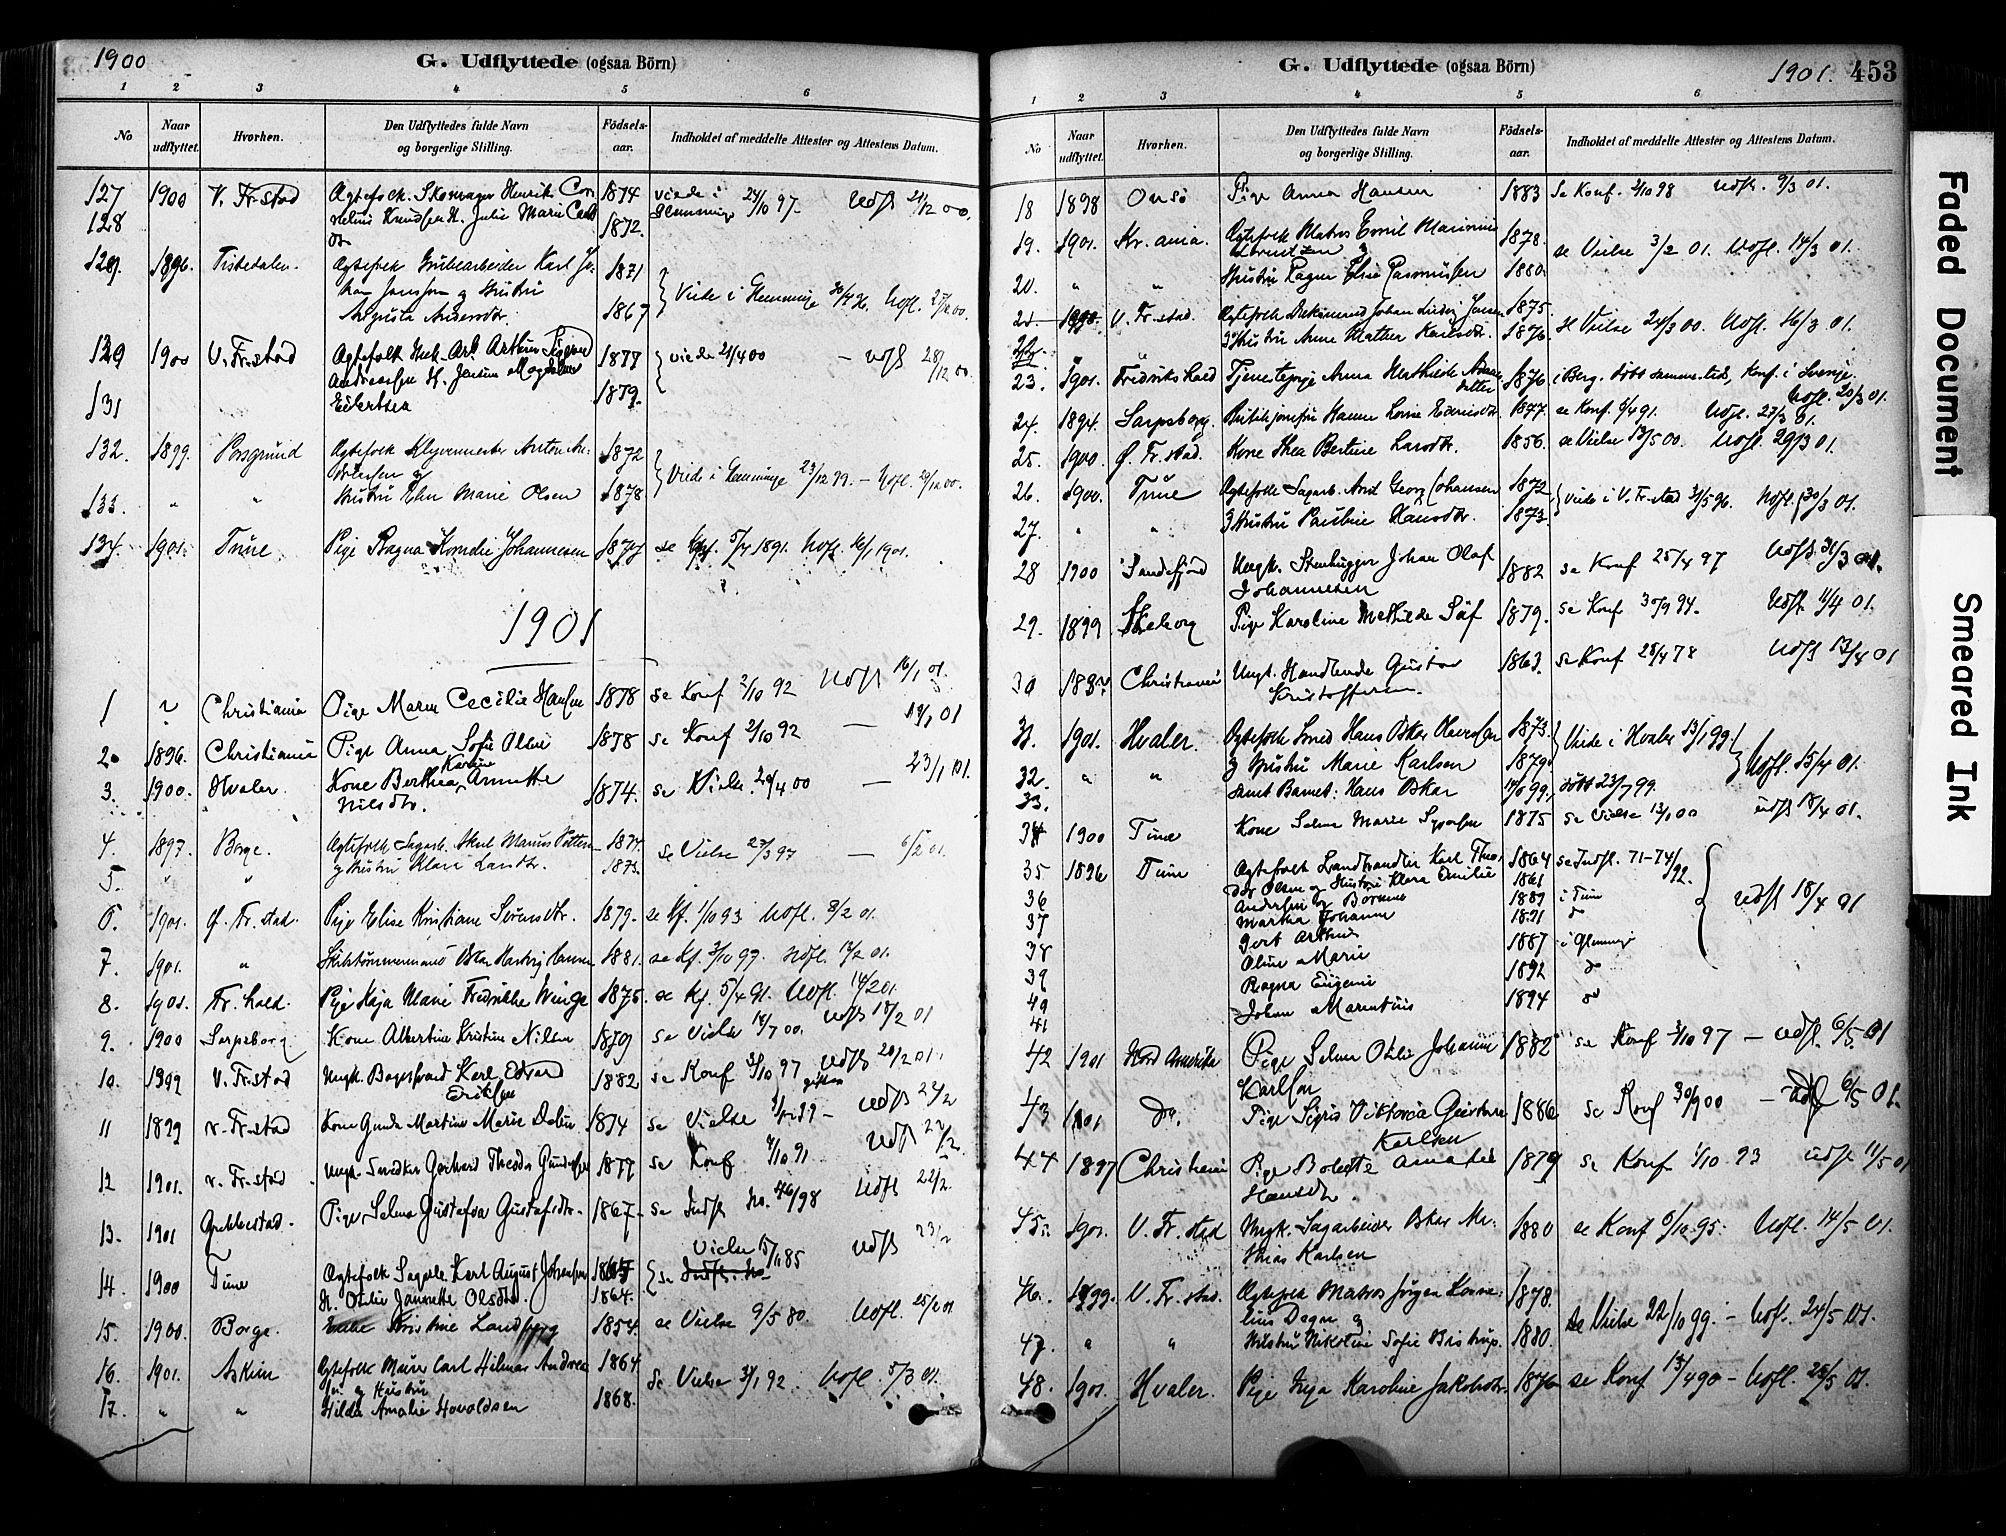 1900
G. Udflyttede (ogsaa Börn)
1 2 3 4 5 6
No
Naar udflyttet.
Hvorhen.
Den Udflyttedes fulde Navn og borgerlige Stilling.
Födsels-aar.
Indholdet af meddelte Attester og Attestens Datum.
127 1900 V. Fr.stad Ægtefolk. Skomager Henrik Cor- 1874 viede i 24/10 97. Udfl 21/12 00.
128 nelius Knudsen H. Julie Marie 1872. Glemminge
129. 1896. Tistedalen. Ægtefolk Grubearbeider Karl Jo- 1871
han Jansson og Hustru Viede i Glemminge Udfl. 27/12 00.
Augusta Andersdtr. 1867
1900 V. Fr.stad Ægtefolk Arthur 1877 viede 21/4 00 — udfl 28/12 00
Andreassen H. Magdalene
131 Eilertsen 1879.
132. 1899. Porsgrund Ægtefolk Anton An- 1872
dersen og Viede i Glemminge 23/12 99. — Udfl. 29/12 00.
133. " " Hustru Elen Marie Olsen 1878
134. 1901. Tune Pige Ragna Kornelie Johannesen 1877 se Kf. 5/7 1891. Udfl. 16/1 1901.
1901
1 ~ Christiania Pige Maren Cecilie Hansen 1878 se Konf 2/10 92 Udfl 16/1 01.
2. 1896. Christiania Pige Anna Sofie Olsen 1878 se Konf 2/10 92 — 19/1 01
3. 1900. Hvaler. Kone Berthea Karine Annette 1874. se Vielse. 20/4 00 — 23/1 01.
Nilsdtr.
4. 1897. Borge. Ægtefolk Sagarb. Marius 1874. se Vielse 27/3 97 — 6/2 01.
5. " " og Hustru Klara 1873.
6. 1901. Ø. Fr.stad. Pige Elise Kristiane Sørensdtr. 1879. se Kf. 1/10 93 Udfl. 9/2 01.
7. 1901. " Skibstømmermand Oskar Hartvig Hansen 1881. se Kf. 3/10 97. Udfl. 12/2 01.
8. 1901. Fr.hald. Pige Kaja Marie Fredrikke Winge 1875. se Kf. 5/4 91. Udfl. 14/2 01.
9. 1900 Sarpsborg Kone Albertine Kristine Nilsen 1879 se Vielse 18/7 00. Udfl 18/2 01
10. 1899 V. Fr.stad Ungk. Karl Edvard 1882 se Konf 3/10 97 Udfl 20/2 01.
Eriksen
11 1899 V. Fr.stad Kone Gunda Martine Marie 1874 se Vielse — Udfl 22/2
12 1901. V. Fr.stad Ungk. Snedker Gerhard Theodor Gundersen 1877 se Konf 4/10 91 Udfl 22/2.
13. 1901 Grebbestad. Pige Selma Gustafva Gustafsdtr. 1867. se Indfl No. 46/98 Udfl 22/2
14. 1900 Tune Ægtefolk Karl August Johansen se Vielse 15/11 85 Udfl 23/2
H. Othilie Jannette Olsdtr. 1864.
15. 1900. Borge. Enke Kristine 1854. se Vielse 9/5 80. Udfl. 25/2 01
16. 1901. Askim Ægtefolk Murer Carl Hilmar Andrea- 1864 se Vielse 31/1 92. Udfl. 5/3 01.
sen og Hustru
17. " " Hilda Amalie Hovaldsen 1868.
G. Udflyttede (ogsaa Börn)
1901. 453
1 2 3 4 5 6
No
Naar udflyttet.
Hvorhen.
Den Udflyttedes fulde Navn og borgerlige Stilling.
Födsels-aar.
Indholdet af meddelte Attester og Attestens Datum.
18 1898 Onsö Pige Anna Hansen 1883 Se Konf. 2/10 98 Udfl. 9/3 01.
19. 1901. Kr.ania. Ægtefolk Matros Emil Marinius 1878. se Vielse 3/2 01. Udfl. 14/3 01.
20. " " Hustru Elise Rasmussen 1880.
21 V. Fr.stad. Ægtefolk Johan Ludvig Jensen 1875. se Vielse 24/3 00. Udfl. 16/3 01.
og Hustru Anne Mathea Karlsdtr. 1876.
23. 1901. Fredrikshald Tjenestepige Anna Mathilde 1876 i Berg. døbt sammesteds, Konf. i Sverige.
datter Udfl. 20/3 01.
24. 1894. Sarpsborg. Butikjomfru Hanna Lovise 1877. se Konf. 5/4 91. Udfl. 27/3 01.
25. 1900. Ø. Fr.stad. Kone Thea Bertine Larsdtr. 1856. se Vielse 13/5 00. Udfl. 29/3 01.
26. 1900. Tune Ægtefolk Sagarb. Georg Johansen 1872 viede i V. Fr.stad 31/5 96. Udfl. 30/3 01.
27. " " og Hustru Pauline Hansdtr. 1873.
28 1900 Sandefjord Ungk. Stenhugger Johan Olaf 1882 se Konf 25/4 97 Udfl. 31/3 01.
Johannesen
29. 1899 Skeberg Pige Karoline Mathilde Säf 1879. se Konf 30/9 94. Udfl. 11/4 01.
30 Christiania Ungk. Handlende Gustav 1863. se Konf 28/4 78 Udfl 13/4 01
Kristoffersen.
31. 1901. Hvaler. Ægtefolk Smed Hans Oskar Olavesen 1873. Viede i Hvaler 13/1 99. Udfl. 15/4 01.
32. " " og Hustru Marie Karlsen 1879.
33. samt Barnet: Hans Oskar døbt 23/7 99.
34 1900 Tune Kone Selma Marie 1875 se Vielse 13/1 00 udfl 18/4 01.
35 1896 Tune Ægtefolk Landhandler Karl Theo- 1864 se Indfl. 71-74/92.
dor Olsen og Hustru Klara Emilie 1861
36 Andersen og Børnene 1889 i Tune udfl 18/4 01
37 Martha Johanne 1891 do
38 Gert Arthur 1887 i Glemminge
39 Oline Marie 1892 do
40 Ragna Eugenie 1894 do
41 Johan Marentius
42 1901 Nord Amerika Pige Selma Othilie Johanne 1882 se Konf 3/10 97 — udfl. 6/5 01
Karlsen
43 1901 Do. Pige Sigris Viktoria Gustava 1886 se Konf 30/9 00 — udfl 6/5 01.
Karlsen
44 1897 Christiania Pige Bolette Amalie 1879 se Konf 1/10 93 udfl 11/5 01
Hansdtr.
45. 1901. V. Fr.stad Ungk. Sagarbeider Oskar Ma- 1880 se Konf 6/10 95. Udfl. 14/5 01.
thias Karlsen
46. 1899. V. Fr.stad. Ægtefolk Matros Jørgen Korne- 1878. se Vielse 22/10 99. — Udfl. 24/5 01.
lius og
47. " " Hustru Nikoline Sofie 1880.
48. 1901. Hvaler. Pige Inga Karoline Jakobsdtr. 1876 se Konf. 13/4 90 — Udfl. 28/5 01.
Faded Document
Smeared Ink